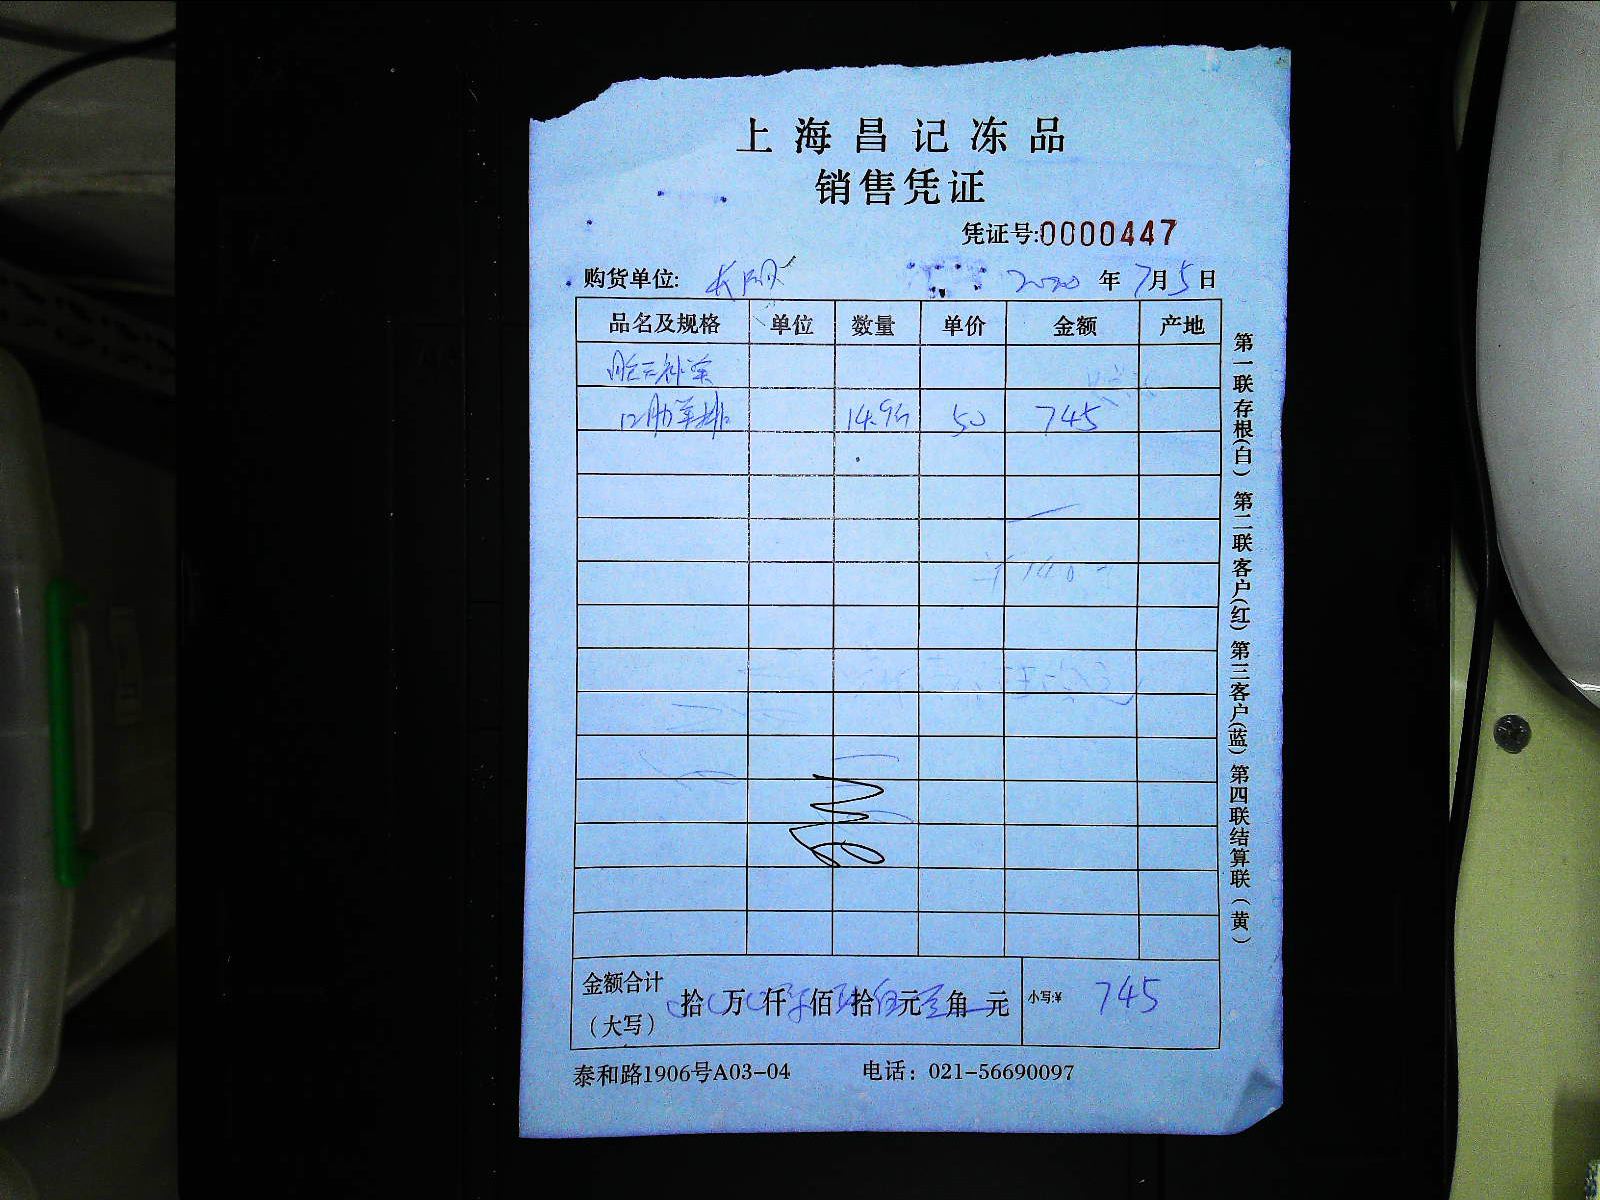 上海昌记冻品
销售凭证
凭证号:0000447
购货单位: 2020 年 7 月 5 日
品名及规格 单位 数量 单价 金额 产地
12肋羊排 14.9斤 50 745
金额合计（大写） 拾 万 仟 佰 拾 元 角 元 小写:¥ 745
泰和路1906号A03-04 电话：021-56690097
第一联存根(白) 第二联客户(红) 第三客户(蓝) 第四联结算联(黄)